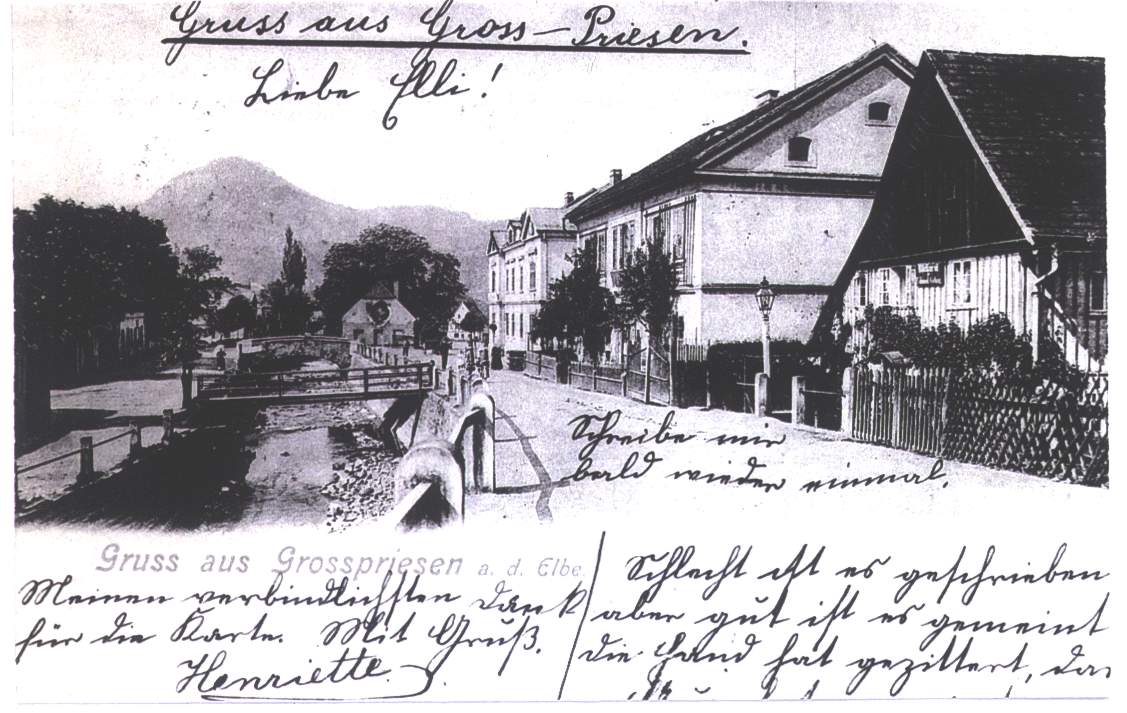 Gruss aus Gross-Priesen.
Liebe Elli!
Schreibe mir
bald wieder einmal.
Gruss aus Grosspriesen a. d. Elbe.
Meinen verbindlichsten Dank
für die Karte. Mit Gruß.
Henriette.
Schlecht ist es geschrieben
aber gut ist es gemeint
die Hand hat gezittert, da